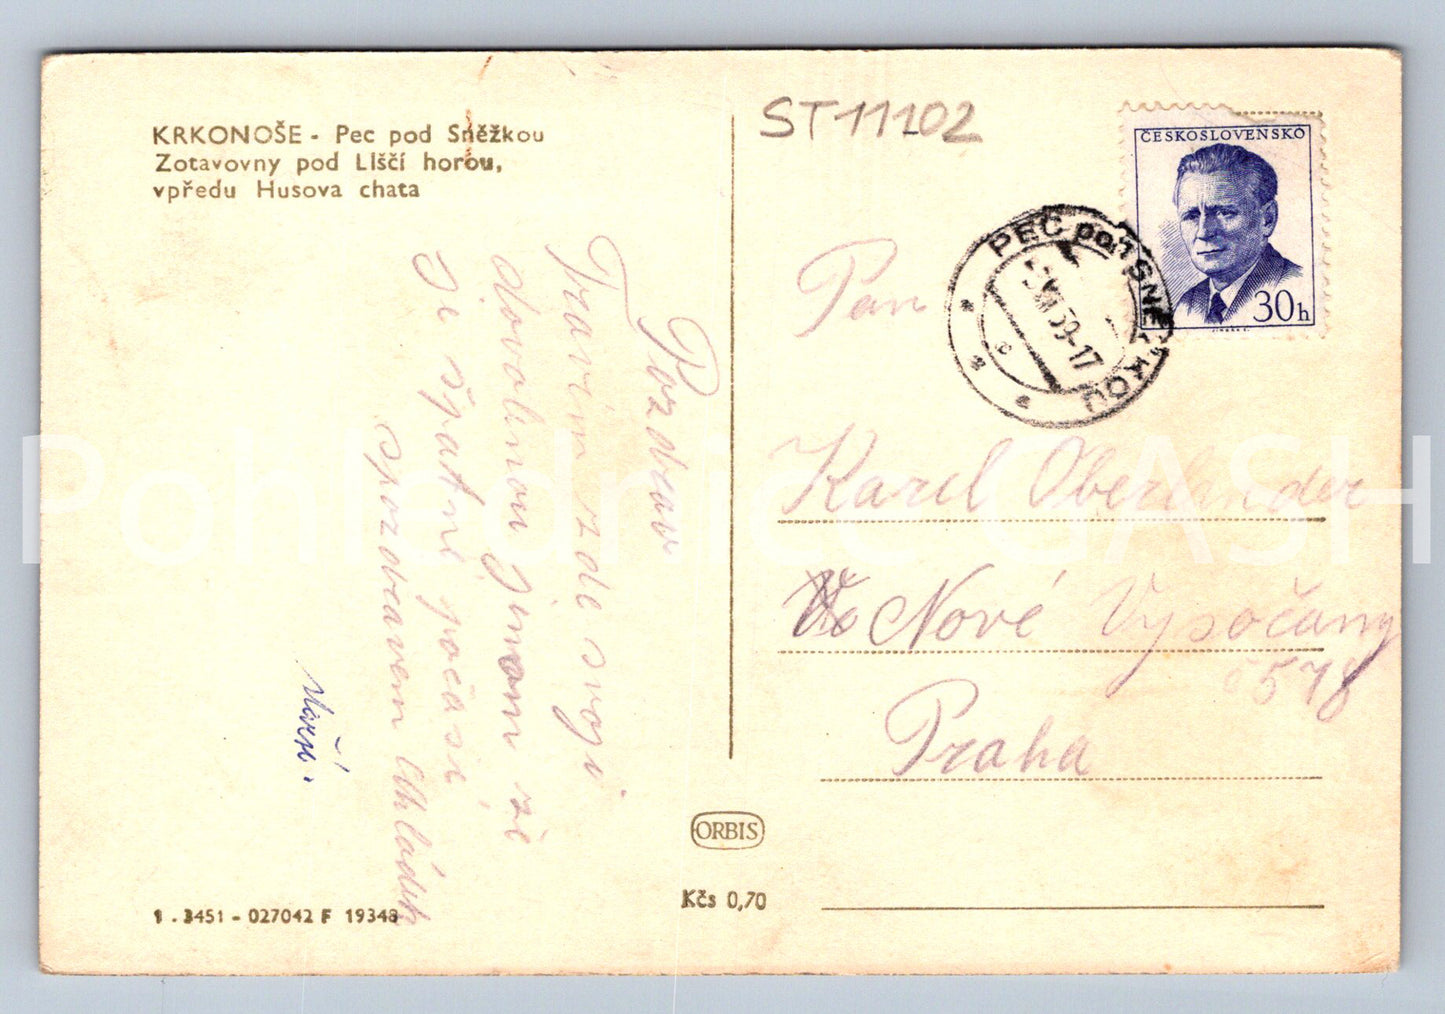 KRKONOŠE - Pec pod Sněžkou
Zotavovny pod Liščí horou,
vpředu Husova chata
ST11102
ČESKOSLOVENSKO
30h
PEC pod SNĚŽKOU
XI.59-17
Pozdrav
Travím zde svoji
dovolenou jinam že
Je špatné počasí
spozdravem
Pan
Karel Oberlander
Nové Vysočany
č 578
Praha
ORBIS
Kčs 0,70
1 - 3451 - 027042 F 19348
Pohlednice GASH